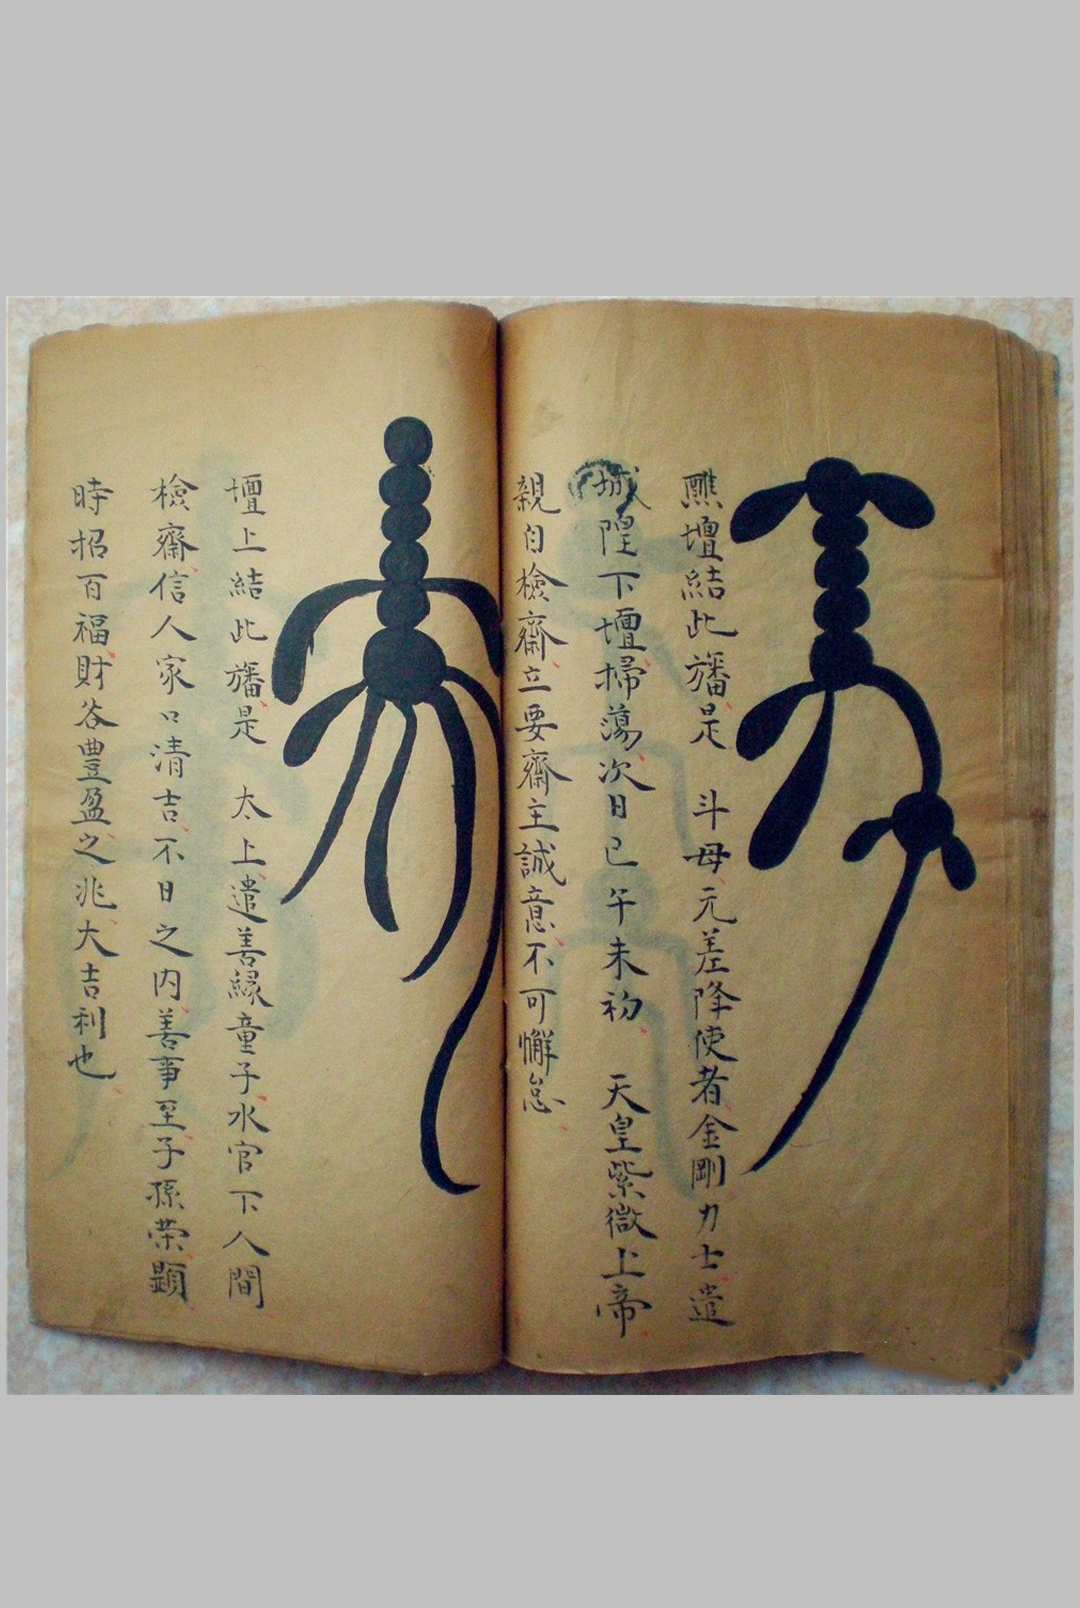 醮壇結此旛是 斗母元差降使者金剛力士遣
城隍下壇掃蕩次日巳午未初 天皇紫微上帝
親自檢齋立要齋主誠意不可懈怠
壇上結此旛是 太上遣善緣童子水官下人間
檢齋信人家口清吉不日之內善事至子孫荣顕
時招百福財谷豊盈之兆大吉利也